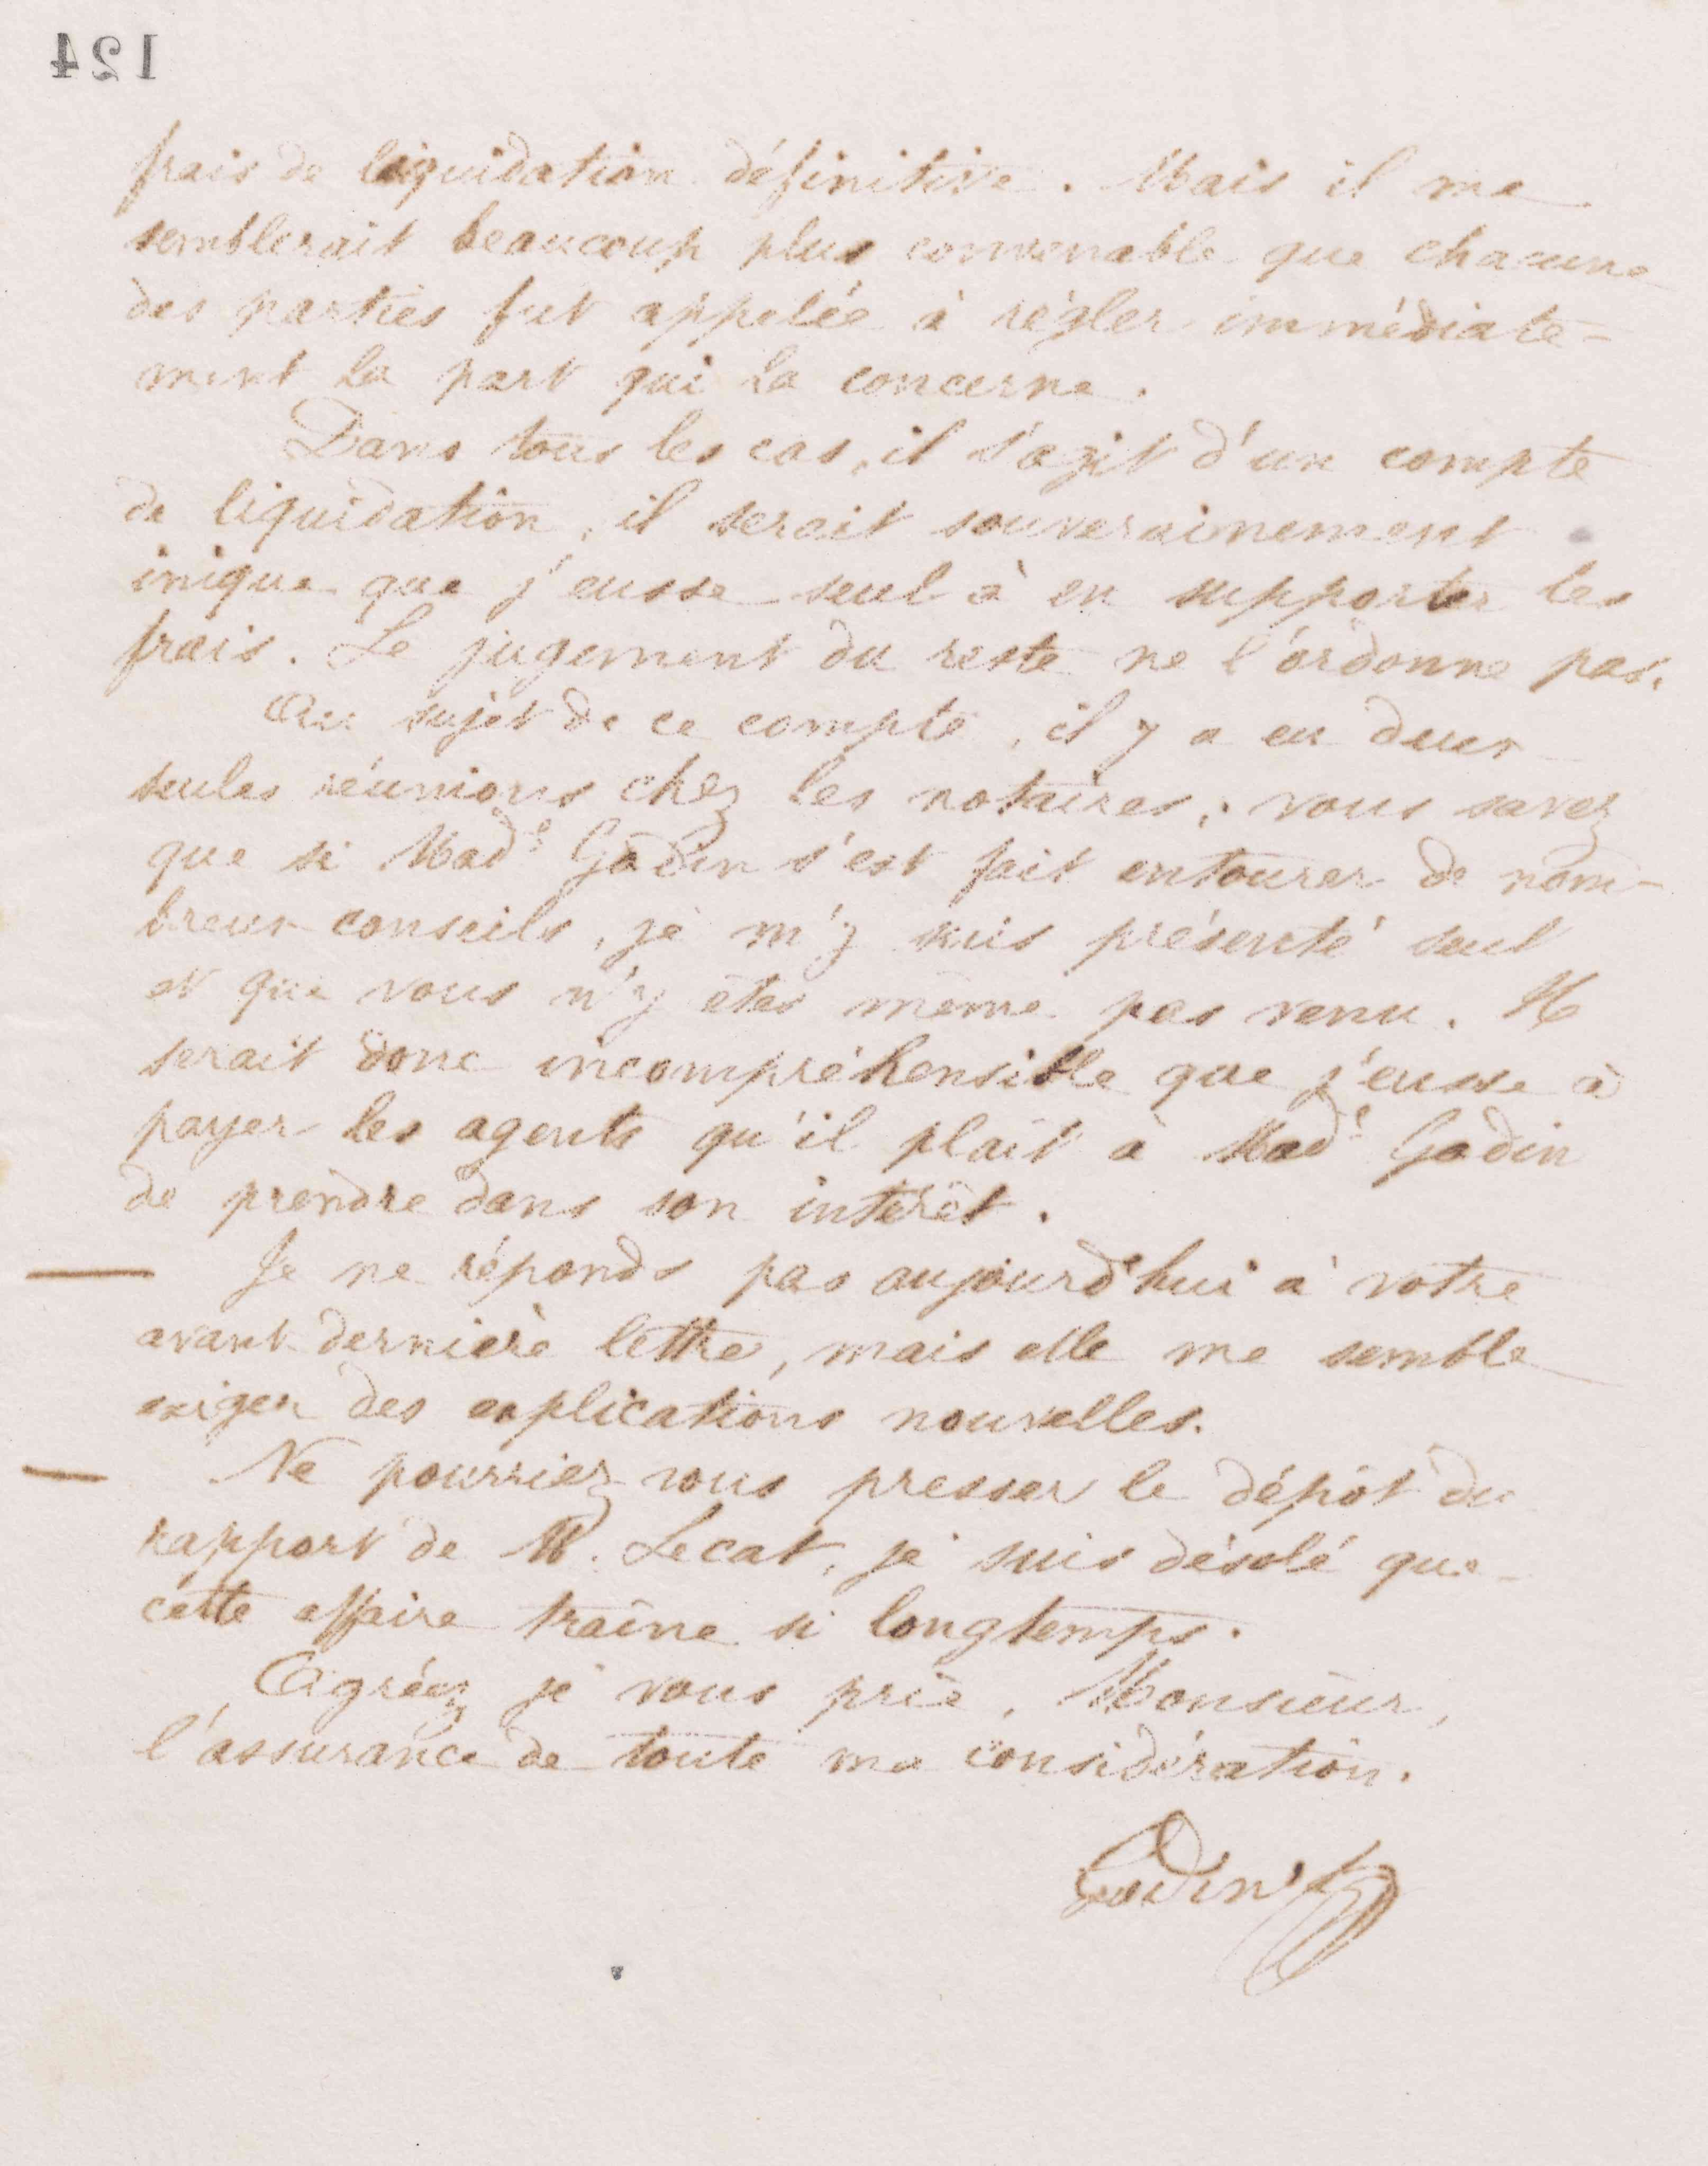 124
frais de liquidation définitive. Mais il me
semblerait beaucoup plus convenable que chacune
des parties fut appelée à régler immédiate-
ment la part qui la concerne.
Dans tous les cas, il s'agit d'un compte
de liquidation, il serait souverainement
inique que j'eusse seul à en supporter les
frais. Le jugement du reste ne l'ordonne pas.
Au sujet de ce compte, il y a eu deux
seules réunions chez les notaires; vous savez
que si Made Godin s'est fait entourer de nom-
breux conseils, je m'y suis présenté seul
et que vous n'y êtes même pas venu. Il
serait donc incompréhensible que j'eusse à
payer les agents qu'il plaît à Made Godin
de prendre dans son intérêt.
Je ne réponds pas aujourd'hui à votre
avant dernière lettre, mais elle me semble
exiger des explications nouvelles.
Ne pourriez vous presser le dépôt du
rapport de M. Lecat, je suis désolé que
cette affaire traîne si longtemps.
Agréez je vous prie, Monsieur,
l'assurance de toute ma considération.
Godin